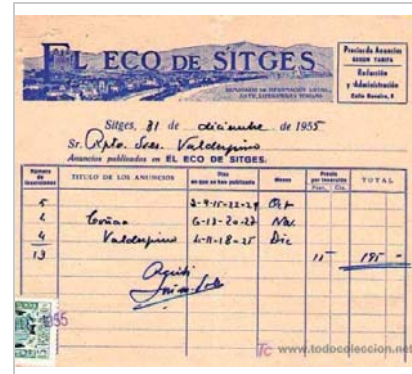 EL ECO DE SITGES
SEMANARIO DE INFORMACIÓN LOCAL,
Precios de Anuncios
SEGÚN TARIFA
Redacción
y Administración
Sitges, 31 de diciembre de 1955
Sr. Rpte. Sres. Valdespino
Anuncios publicados en EL ECO DE SITGES.
Número de inserciones TITULO DE LOS ANUNCIOS Días en que se han publicado Meses Precio por inserción TOTAL
Ptas. Cts.
5 2-9-15-22-29 Oct
4 Coñac 6-13-20-27 Nov.
4 Valdespino 4-11-18-25 Dic
13 15 195 -
1955
TC www.todocoleccion.net